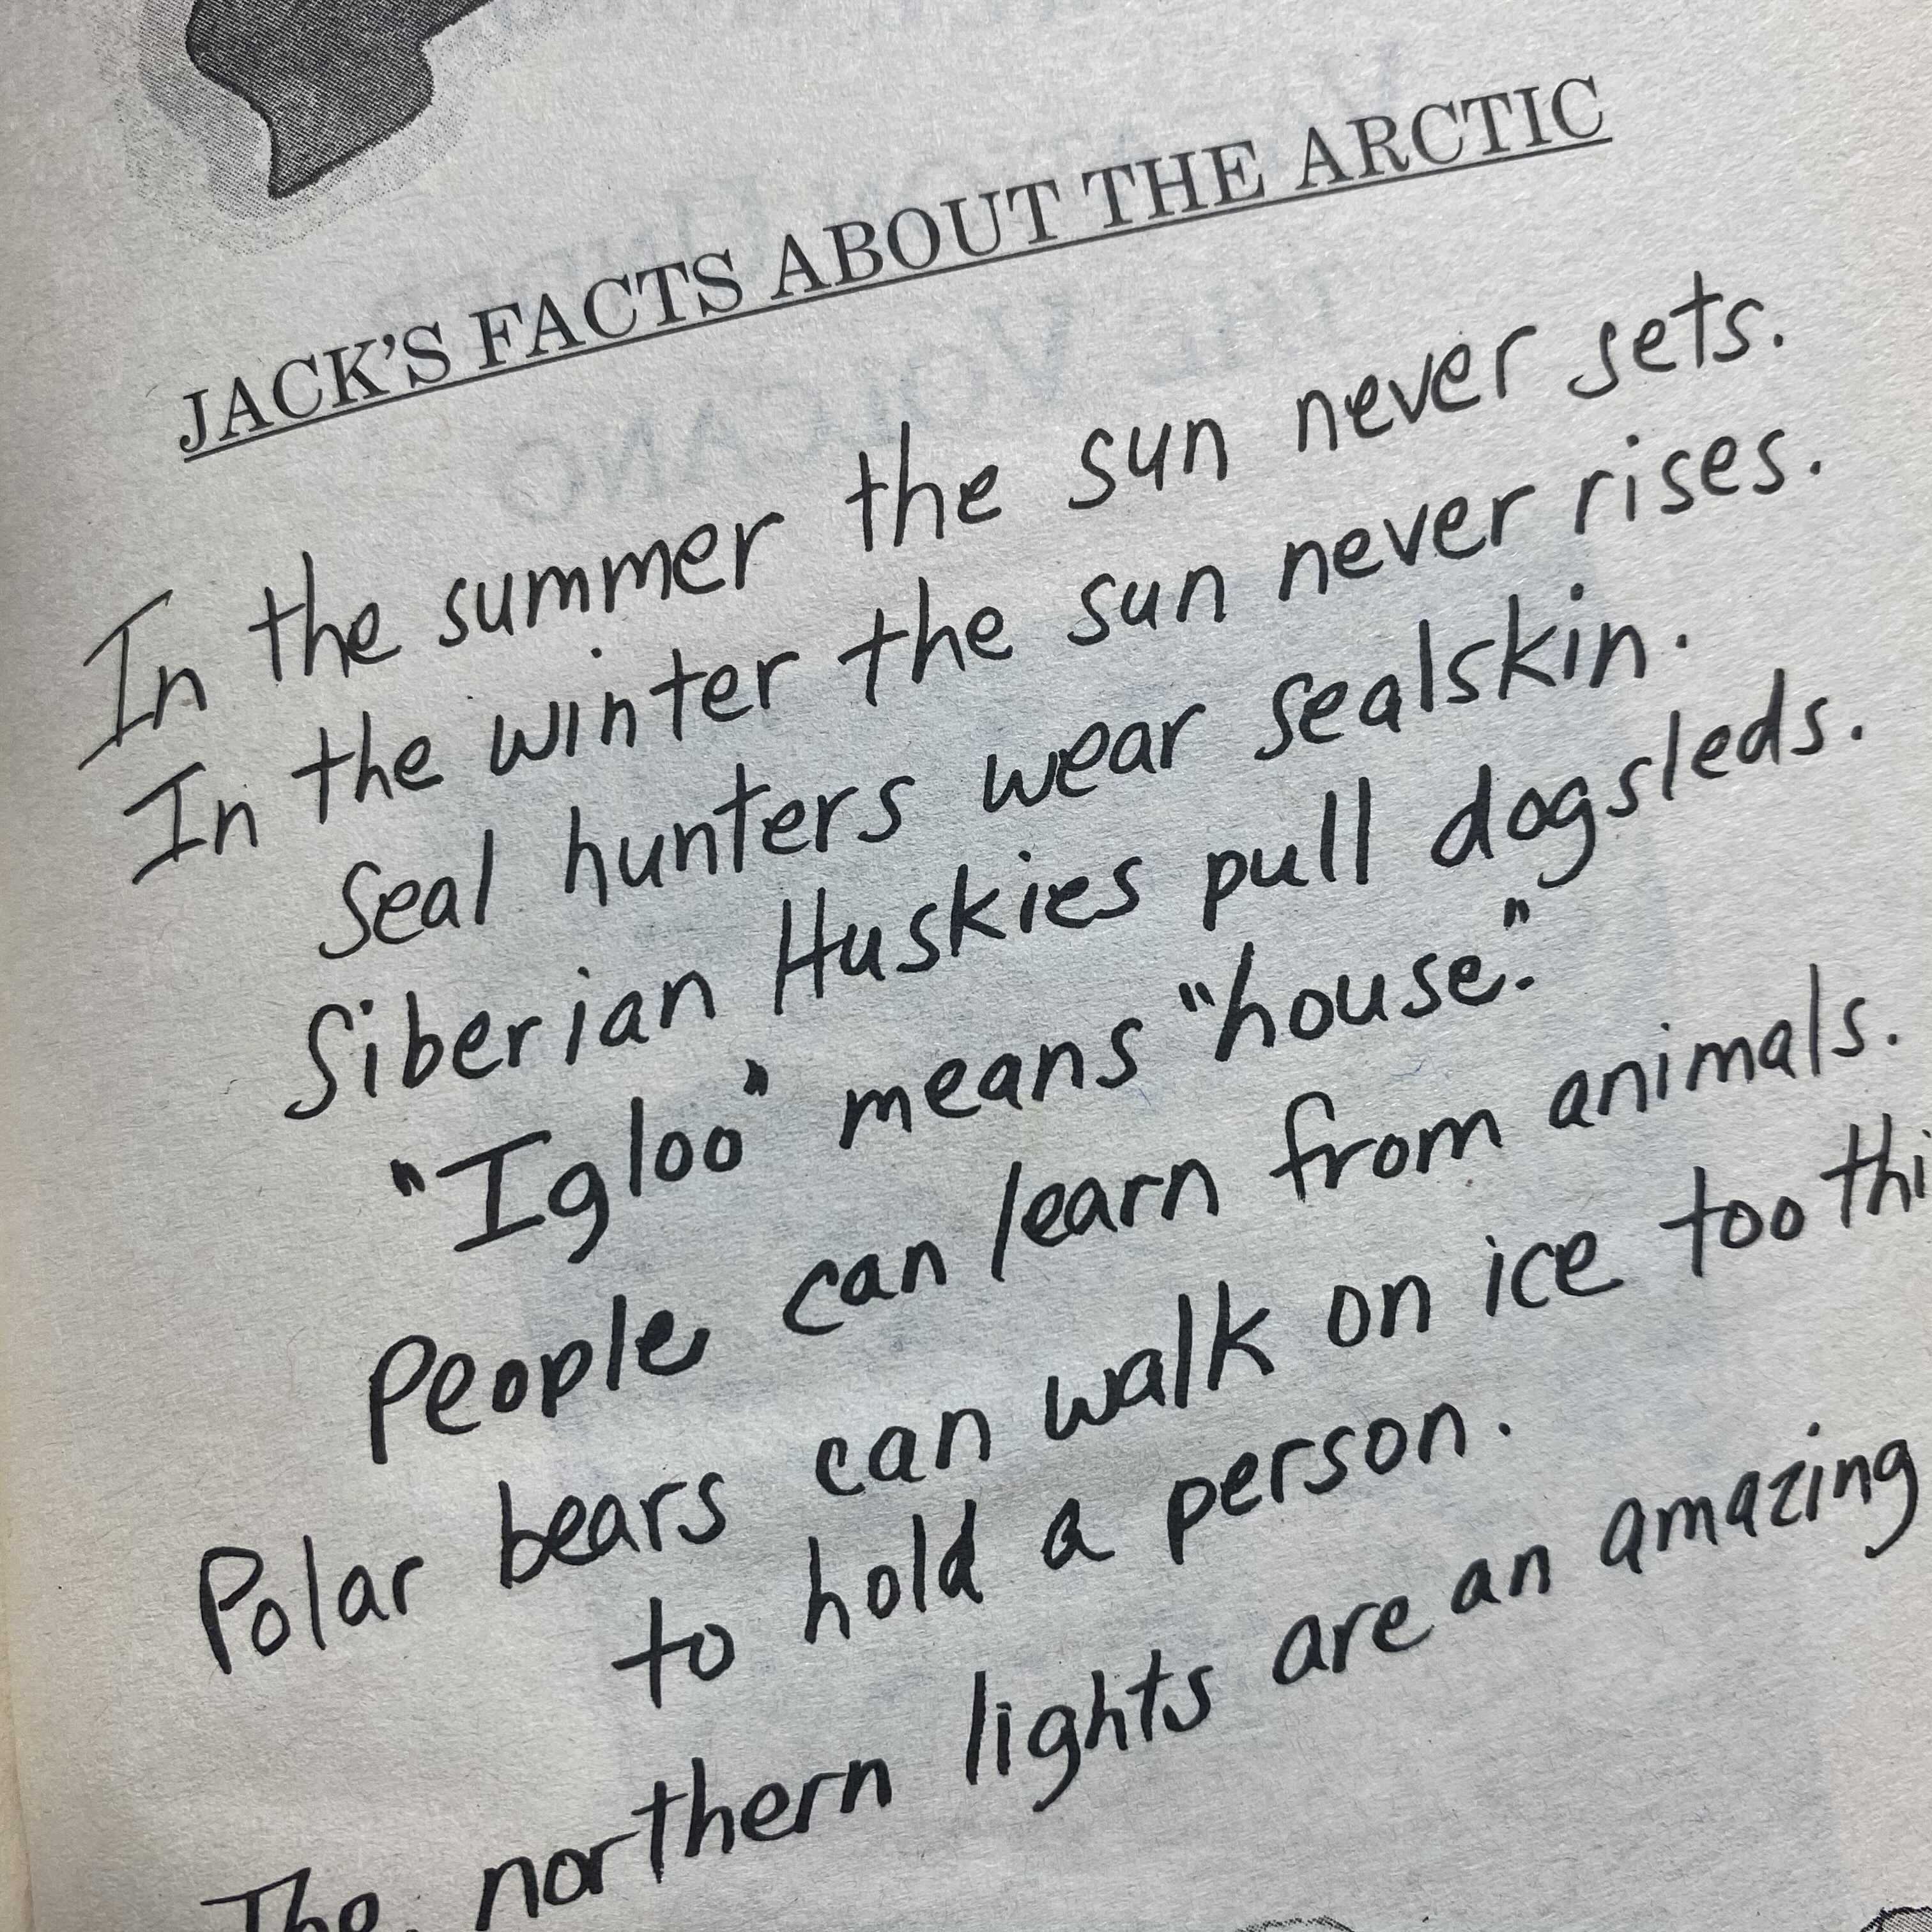 JACK'S FACTS ABOUT THE ARCTIC
In the summer the sun never sets.
In the winter the sun never rises.
Seal hunters wear sealskin.
Siberian Huskies pull dogsleds.
"Igloo" means "house."
People can learn from animals.
Polar bears can walk on ice too thi
to hold a person.
The northern lights are an amazing